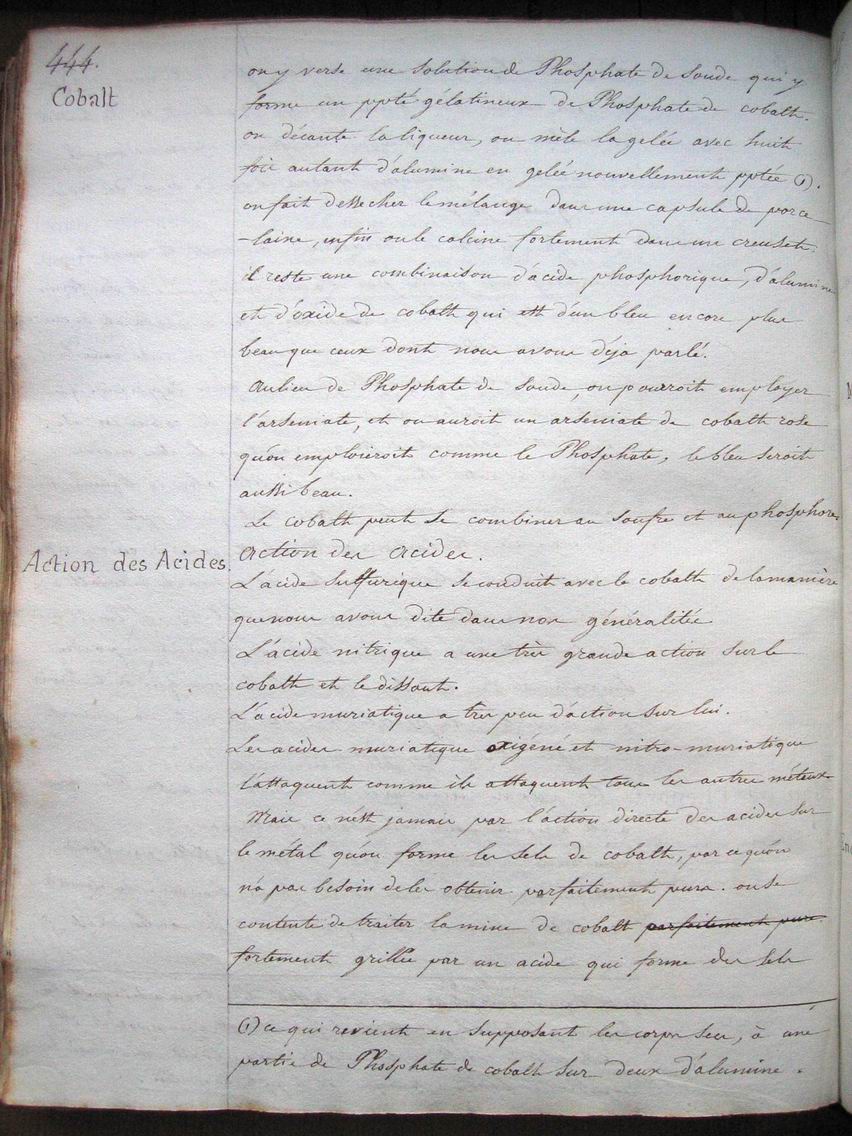 444.
Cobalt
on y verse une solution de Phosphate de soude qui y
forme un ppté gélatineux de Phosphate de cobalt.
on décante la liqueur, on mêle la gelée avec huit
fois autant d'alumine en gelée nouvellement pptée (1).
on fait dessecher le mélange dans une capsule de porce
-laine, enfin on le calcine fortement dans un creuset.
il reste une combinaison d'acide phosphorique, d'alumine
et d'oxide de cobalt qui est d'un bleu encore plus
beau que ceux dont nous avons déja parlé.
Aulieu de Phosphate de soude, on pourroit employer
l'arseniate, et on auroit un arseniate de cobalt rose
qu'on emploieroit comme le Phosphate, le bleu seroit
aussi beau.
Le cobalt peut se combiner au soufre et au phosphore.
Action des Acides.
action des acides.
L'acide sulfurique se conduit avec le cobalt de la manière
que nous avons dite dans nos généralités
L'acide nitrique a une très grande action sur le
cobalt et le dissout.
L'acide muriatique a tres peu d'action sur lui.
Les acides muriatique oxigéné et nitro-muriatique
l'attaquent comme ils attaquent tous les autres métaux
Mais ce n'est jamais par l'action directe des acides sur
le métal qu'on forme les sels de cobalt, par ce qu'on
n'a pas besoin de les obtenir parfaitement purs. on se
contente de traiter la mine de cobalt parfaitement pure
fortement grillée par un acide qui forme des sels
(1) ce qui revient en supposant les corps secs, à une
partie de Phosphate de cobalt sur deux d'alumine.